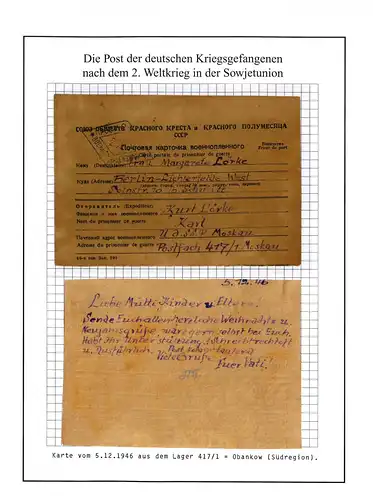 Die Post der deutschen Kriegsgefangenen
nach dem 2. Weltkrieg in der Sowjetunion
СОЮЗ ОБЩЕСТВ КРАСНОГО КРЕСТА и КРАСНОГО ПОЛУМЕСЯЦА
СССР
Почтовая карточка военнопленного
Carte postale du prisonnier de guerre
Бесплатно
Franc de port
Кому (Destinataire) Frau Margarete Lörke
Куда (Adresse) Berlin-Lichterfelde West
Отправитель (Expéditeur)
Фамилия и имя военнопленного Kurt Lörke
Nom du prisonnier de guerre Karl
Почтовый адрес военнопленного U.d.SSR Moskau
Adresse du prisonnier de guerre Postfach 417/1 Moskau
5.12.46
Liebe Mutti, Kinder u. Eltern!
Sende Euch allen herzliche Weihnachts u.
Neujahrsgrüße, wäre gern selbst bei Euch.
Habt Ihr Unterstützung, schreibt recht oft
u. ausführlich. Post
Viele Grüße
Euer Vati!
Karte vom 5.12.1946 aus dem Lager 417/1 = Obankow (Südregion).